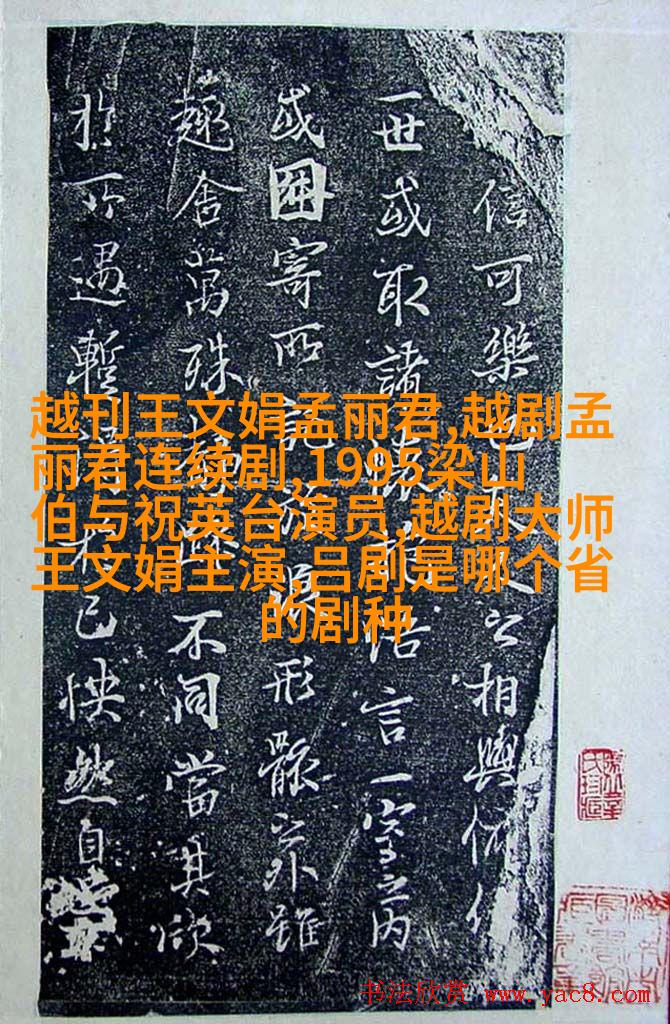 信可樂也夫人之相與俯仰
一世或取諸懷抱悟言一室之內
或因寄所託放浪形骸之外雖
趣舍萬殊靜躁不同當其欣
於所遇暫得於己怏然自
越刊王文娟孟丽君,越剧孟
丽君连续剧,1995梁山
伯与祝英台演员,越剧大师
王文娟主演,吕剧是哪个省
的剧种
书法欣赏 www.yac8.com